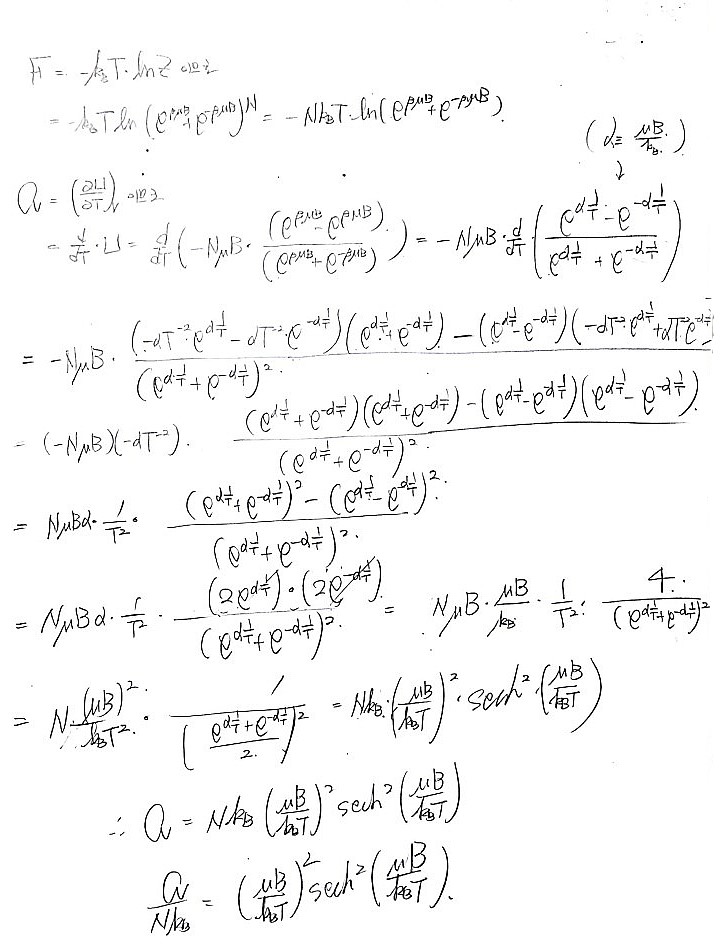 F = -k_B T · ln Z 이므로
= -k_B T ln (e^{βμB} + e^{-βμB})^N = -N k_B T · ln(e^{βμB} + e^{-βμB}).
(α = μB/k_B.)
↓
C_V = (∂U/∂T)_V 이므로
= d/dT · U = d/dT (-NμB · (e^{βμB} - e^{-βμB})/(e^{βμB} + e^{-βμB})) = -NμB · d/dT · ((e^{α1/T} - e^{-α1/T})/(e^{α1/T} + e^{-α1/T}))
= -NμB · ((-αT^{-2} · e^{α1/T} - αT^{-2} · e^{-α1/T})(e^{α1/T} + e^{-α1/T}) - (e^{α1/T} - e^{-α1/T})(-αT^{-2} · e^{α1/T} + αT^{-2} e^{-α1/T}))/(e^{α1/T} + e^{-α1/T})^2.
= (-NμB)(-αT^{-2}) · ((e^{α1/T} + e^{-α1/T})(e^{α1/T} + e^{-α1/T}) - (e^{α1/T} - e^{-α1/T})(e^{α1/T} - e^{-α1/T}))/(e^{α1/T} + e^{-α1/T})^2.
= NμBα · 1/T^2 · ((e^{α1/T} + e^{-α1/T})^2 - (e^{α1/T} - e^{-α1/T})^2)/(e^{α1/T} + e^{-α1/T})^2.
= NμBα · 1/T^2 · ((2e^{α1/T}) · (2e^{-α1/T}))/(e^{α1/T} + e^{-α1/T})^2. = NμB · μB/k_B · 1/T^2 · 4/(e^{α1/T} + e^{-α1/T})^2
= N · (μB)^2/(k_B T^2) · 1/((e^{α1/T} + e^{-α1/T})/2)^2 = Nk_B · (μB/k_BT)^2 · sech^2 (μB/k_BT)
∴ C_V = Nk_B (μB/k_BT)^2 sech^2 (μB/k_BT)
C_V/Nk_B = (μB/k_BT)^2 sech^2 (μB/k_BT).